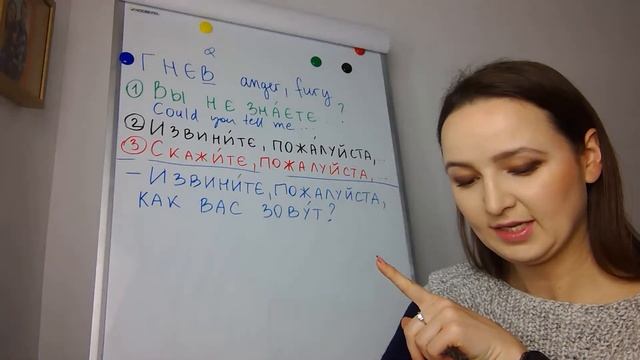 ГНЕВ anger, fury
① ВЫ НЕ ЗНА́ЕТЕ...?
Could you tell me...
② ИЗВИНИ́ТЕ, ПОЖА́ЛУЙСТА,...
③ СКАЖИ́ТЕ, ПОЖА́ЛУЙСТА,...
– ИЗВИНИ́ТЕ, ПОЖА́ЛУЙСТА,
КАК ВАС ЗОВУ́Т?